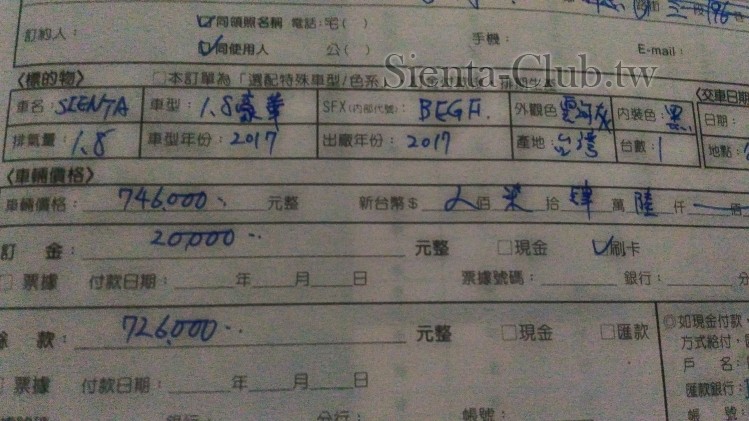 同領照名稱 電話:宅( )
訂約人: 同使用人 公( ) 手機: E-mail:
Sienta-Club.tw
〈標的物〉 □本訂單為「選配特殊車型/色系 〈交車日期
車名:SIENTA 車型:1.8豪華 SFX(內部代號): BEGH. 外觀色:雲河灰 內裝色:黑 日期:
排氣量:1.8 車型年份:2017 出廠年份:2017 產地:台灣 台數:1 地點:
〈車輛價格〉
車輛價格: 746,000.- 元整 新台幣$ 佰 柒 拾 肆 萬 陸 仟 佰
訂 金: 20,000.- 元整 □現金 刷卡
□ 票據 付款日期: 年 月 日 票據號碼: 銀行: 分
餘 款: 726,000.- 元整 □現金 □匯款 ◎如現金付款,
方式給付,
□ 票據 付款日期: 年 月 日 戶 名:
匯款銀行:
票據號碼 銀行: 分行: 帳號: 帳 號: